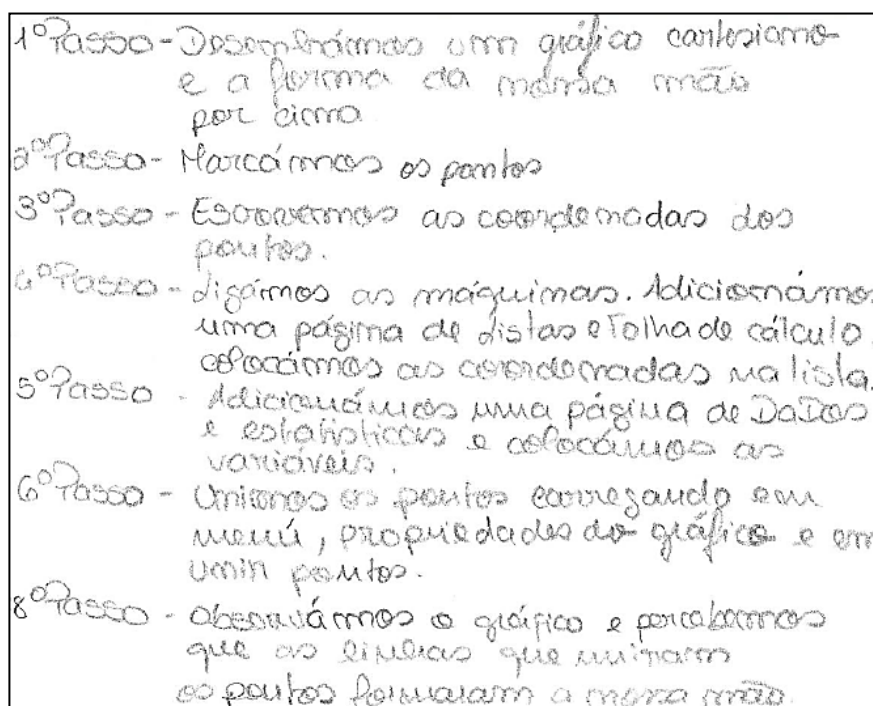 1º Passo - Desenhámos um gráfico cartesiano
e a forma da nossa mão
por cima
2º Passo - Marcámos os pontos
3º Passo - Escrevemos as coordenadas dos
pontos.
4º Passo - Ligámos as máquinas. Adicionámos
uma página de Listas e Folha de cálculo.
colocámos as coordenadas na lista.
5º Passo - Adicionámos uma página de DaDos
e estatísticas e colocámos as
variáveis.
6º Passo - Unimos os pontos carregando em
menú, propriedades do gráfico e em
Unir pontos.
8º Passo - Observámos o gráfico e percebemos
que as linhas que uniram
os pontos formaram a nossa mão.